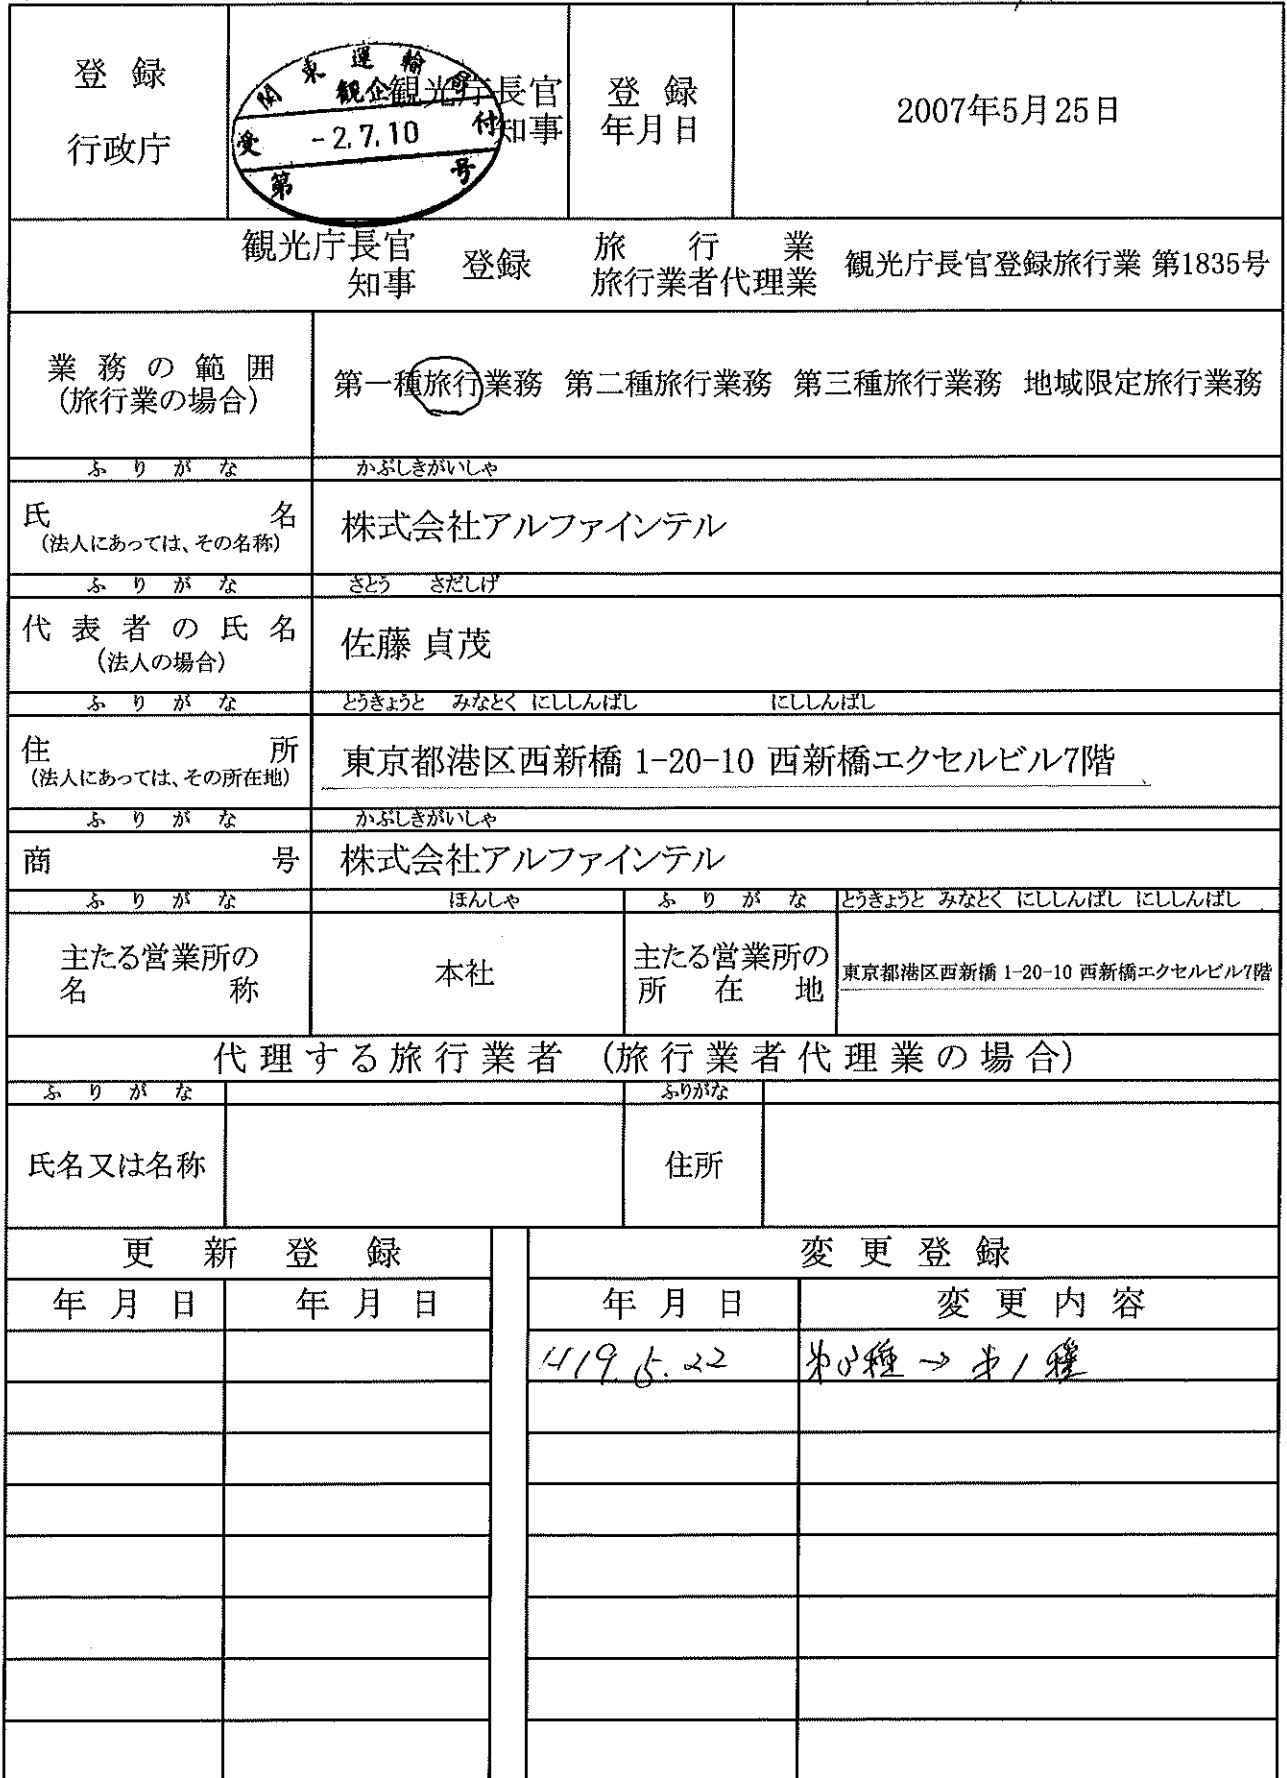 登録
行政庁
関東運輸局
観企
受 -2.7.10 付
第 号
観光庁長官
知事
登録
年月日
2007年5月25日
観光庁長官
知事
登録
旅行業
旅行業者代理業
観光庁長官登録旅行業 第1835号
業務の範囲
(旅行業の場合)
第一種旅行業務 第二種旅行業務 第三種旅行業務 地域限定旅行業務
ふりがな かぶしきがいしゃ
氏名
(法人にあっては、その名称)
株式会社アルファインテル
ふりがな さとう さだしげ
代表者の氏名
(法人の場合)
佐藤 貞茂
ふりがな とうきょうと みなとく にししんばし にししんばし
住所
(法人にあっては、その所在地)
東京都港区西新橋 1-20-10 西新橋エクセルビル7階
ふりがな かぶしきがいしゃ
商号 株式会社アルファインテル
ふりがな ほんしゃ ふりがな とうきょうと みなとく にししんばし にししんばし
主たる営業所の
名称
本社
主たる営業所の
所在地
東京都港区西新橋 1-20-10 西新橋エクセルビル7階
代理する旅行業者 (旅行業者代理業の場合)
ふりがな ふりがな
氏名又は名称 住所
更新登録 変更登録
年月日 年月日 年月日 変更内容
H19.5.22 第3種→第1種